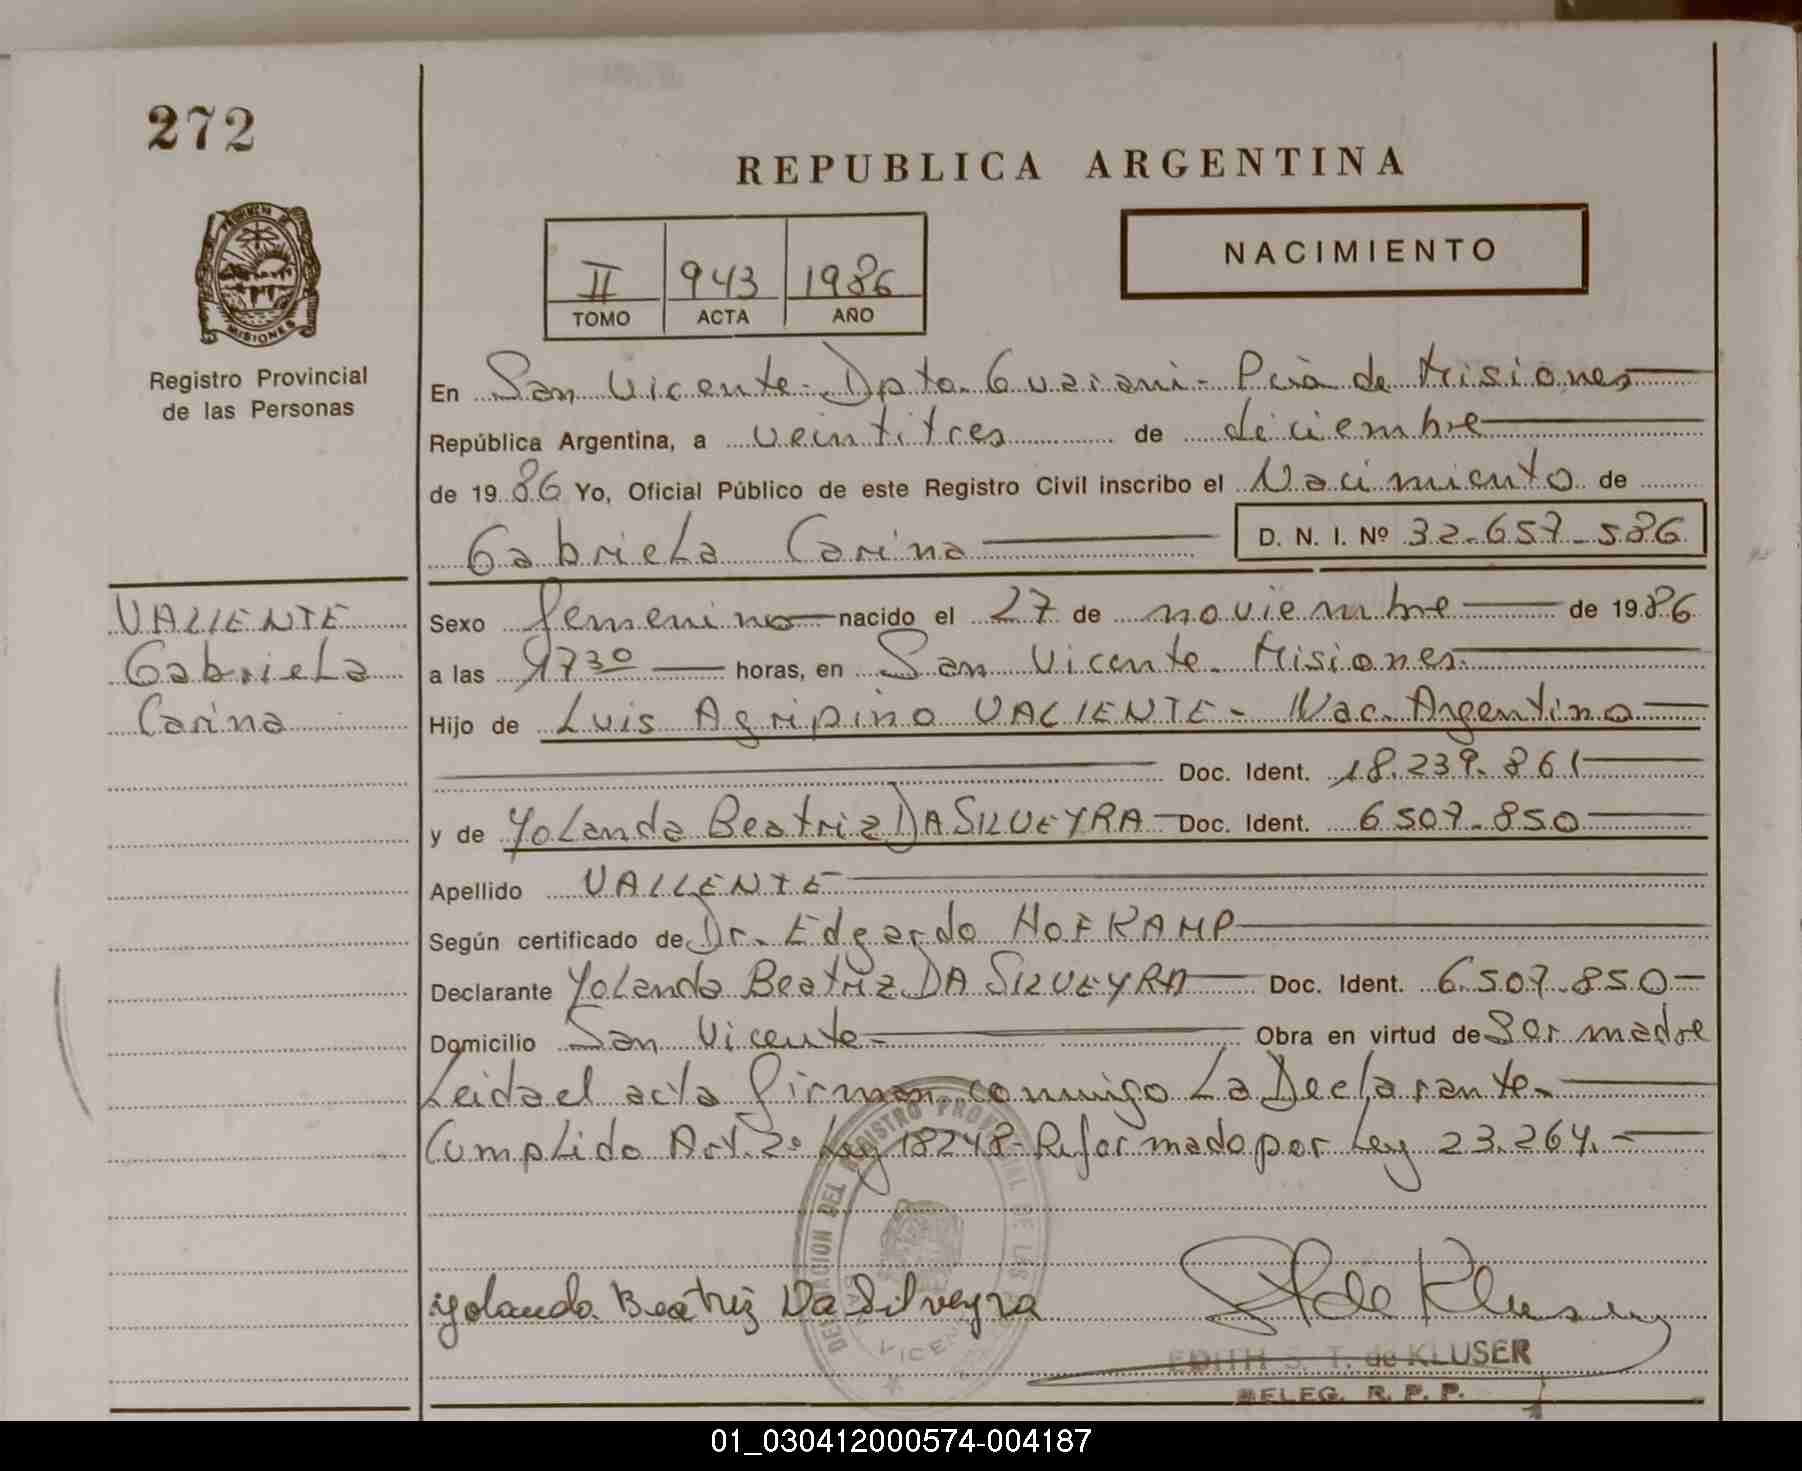 272
REPUBLICA ARGENTINA
PROVINCIA DE
MISIONES
Registro Provincial
de las Personas
II 943 1986
TOMO ACTA AÑO
NACIMIENTO
En San Vicente - Dpto. Guarani - Pcia de Misiones
República Argentina, a veintitres de diciembre
de 1986 Yo, Oficial Público de este Registro Civil inscribo el Nacimiento de
Gabriela Carina D. N. I. Nº 32.657.586
VALIENTE
Gabriela
Carina
Sexo femenino nacido el 27 de noviembre de 1986
a las 1730 horas, en San Vicente. Misiones.
Hijo de Luis Agripino VALIENTE - Nac. Argentino
Doc. Ident. 18.239.861
y de Yolanda Beatriz DA SILVEYRA Doc. Ident. 6507.850
Apellido VALIENTE
Según certificado de Dr. Edgardo HOFKAMP
Declarante Yolanda Beatriz DA SILVEYRA Doc. Ident. 6.507.850
Domicilio San Vicente Obra en virtud de Ser madre
Leida el acta firman conmigo La Declarante.
Cumplido Art. 2º Ley 18248 - Reformado por Ley 23.264.
DELEGACION DEL REGISTRO PROVINCIAL DE LAS
SAN VICENTE
Yolanda Beatriz Da Silveyra
de Kluser
EDITH S. T. de KLUSER
DELEG. R. P. P.
01_030412000574-004187